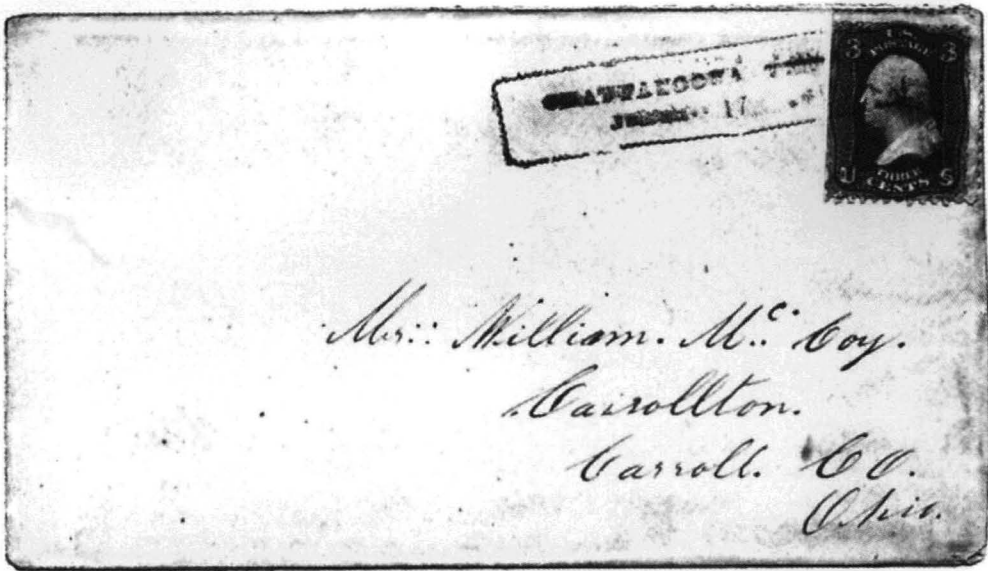 CHATTANOOGA TEN
17
3 U.S. 3
POSTAGE
THREE
U CENTS S
Mr:: William. Mc:: Coy.
Carrollton.
Carroll. CO.
Ohio.